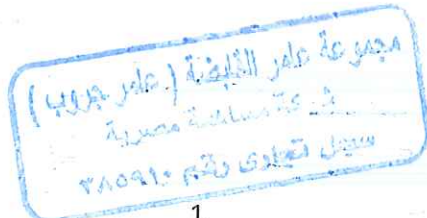 مجموعة عامر القابضة (عامر جروب)
شركة مساهمة مصرية
سجل تجارى رقم ٣٨٥٩١٠
1